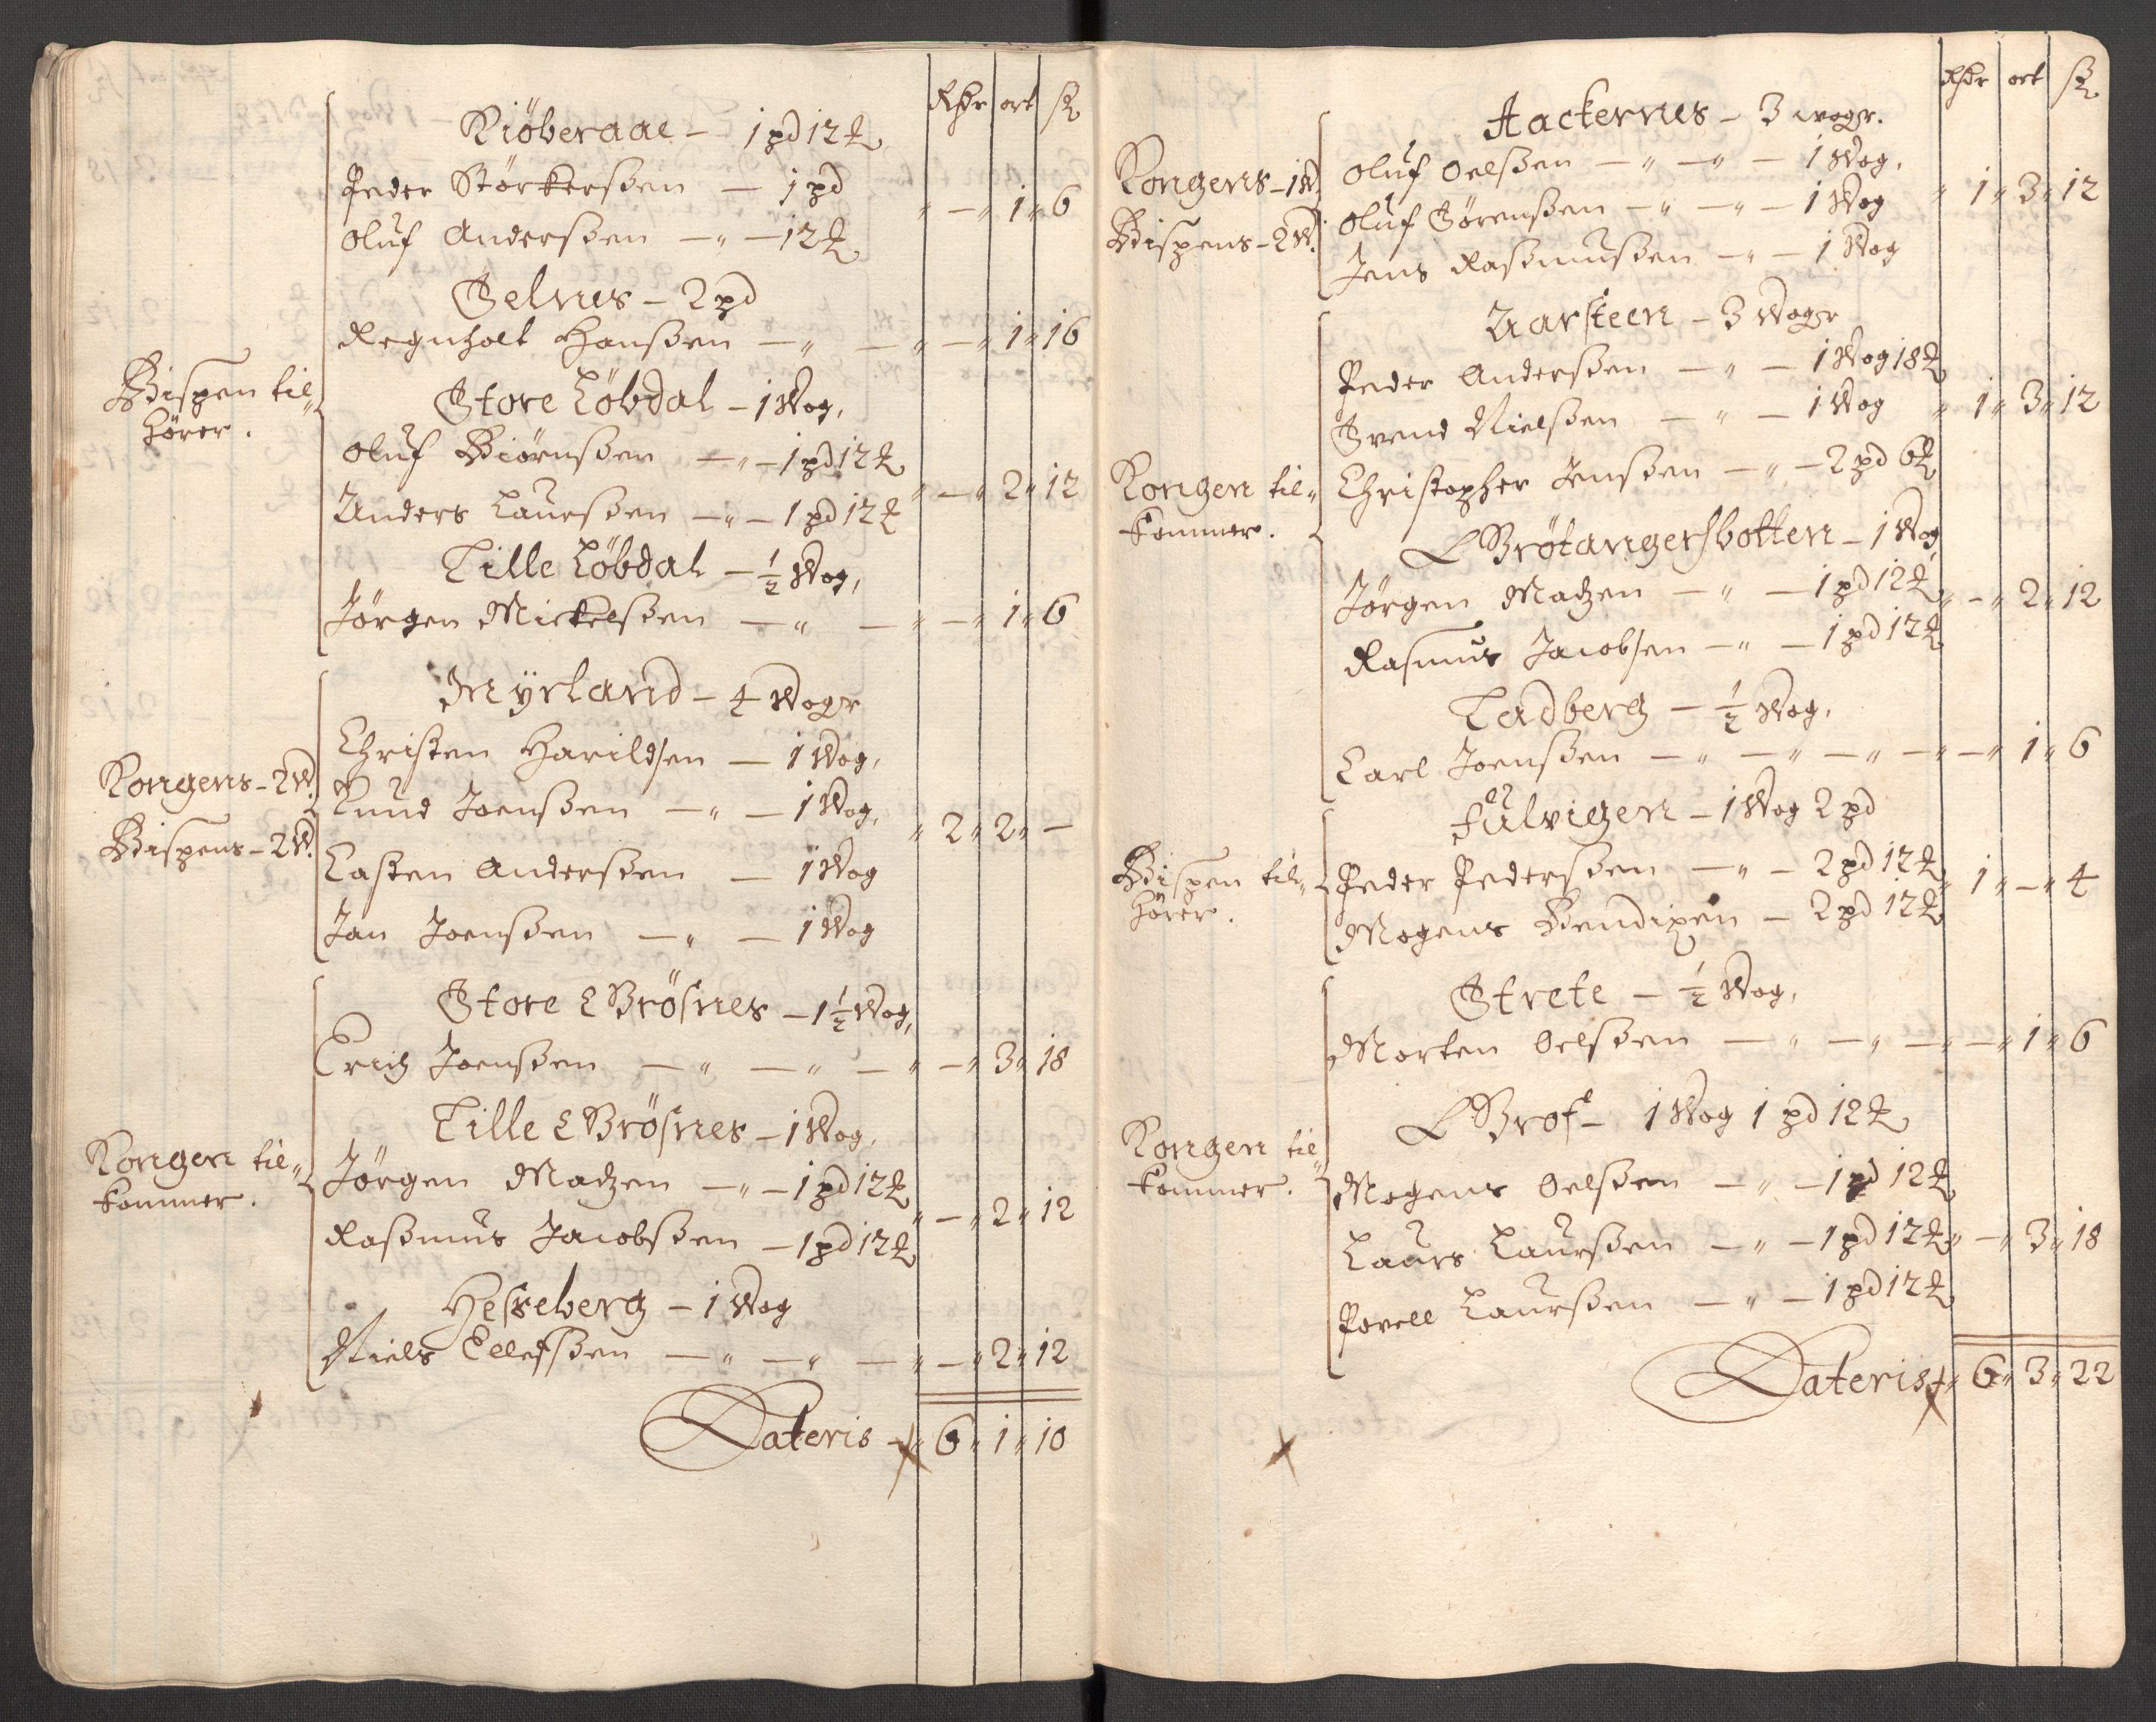 Rhdr ort ß
Kiöberaae – 1 pd 12 ℔
Peder Störkersßen — 1 pd
Oluf Andersßen — „ — 12 ℔ „ — „ 1 „ 6
Selnes – 2 pd
Regnholt Hansßen — „ — „ — „ 1 „ 16
Bispen til„
hörer.
Store Löbdal – 1 Wog,
Oluf Biörnsßen — „ — 1 pd 12 ℔
Anders Laursßen — „ — 1 pd 12 ℔ „ — „ 2 „ 12
Lille Löbdal – ½ Wog,
Jörgen Mickelsßen — „ — „ — „ 1 „ 6
Myrland – 4 Wogr
Christen Harildsen — 1 Wog,
Kongens – 2 W.
Knud Joensßen — „ — 1 Wog,
Bispens – 2 W. „ 2 „ 2 „ —
Lasten Andersßen — 1 Wog
Jan Joensßen — „ — 1 Wog
Store Brösnes – 1½ Wog,
Erich Joensßen — „ — „ — „ — „ 3 „ 18
Lille Brösnes – 1 Wog,
Kongen til„
kommer.
Jörgen Madzen — „ — 1 pd 12 ℔
Rasßmus Jacobsßen — 1 pd 12 ℔ „ — „ 2 „ 12
Hesseberg – 1 Wog
Niels Ellefsßen — „ — „ — „ — „ 2 „ 12
Lateris „ 6 „ 1 „ 10
Rhdr ort ß
Aackernes – 3 wogr.
Kongens – 1 W.
Oluf Oelsßen — „ — „ — 1 Wog,
Bispens – 2 W.
Oluf Sörensßen — „ — „ — 1 Wog „ 1 „ 3 „ 12
Jens Rasßmusßen — „ — 1 Wog
Aarsteen – 3 Wogr
Peder Andersßen — „ — 1 Wog 18 ℔
Svend Nielsßen — „ — 1 Wog „ 1 „ 3 „ 12
Kongen til„
kommer.
Christopher Jensßen — „ — 2 pd 6 ℔
Brötangersbotten – 1 Wog,
Jörgen Madzen — „ — 1 pd 12 ℔ „ — „ 2 „ 12
Rasmus Jacobsen — „ — 1 pd 12 ℔
Ladberg – ½ Wog,
Carl Joensßen — „ — „ — „ — „ — „ 1 „ 6
Fulvigen – 1 Wog 2 pd
Bispen til„
hörer.
Peder Pedersßen — „ — 2 pd 12 ℔ „ 1 „ — „ 4
Mogens Bendixen — 2 pd 12 ℔
Strete – ½ Wog,
Morten Oelsßen — „ — „ — „ — „ 1 „ 6
Brof – 1 Wog 1 pd 12 ℔
Kongen til„
kommer.
Mogens Oelsßen — „ — 1 pd 12 ℔
Laurs Laursßen — „ — 1 pd 12 ℔ „ — „ 3 „ 18
Povell Laursßen — „ — 1 pd 12 ℔
Lateris „ 6 „ 3 „ 22